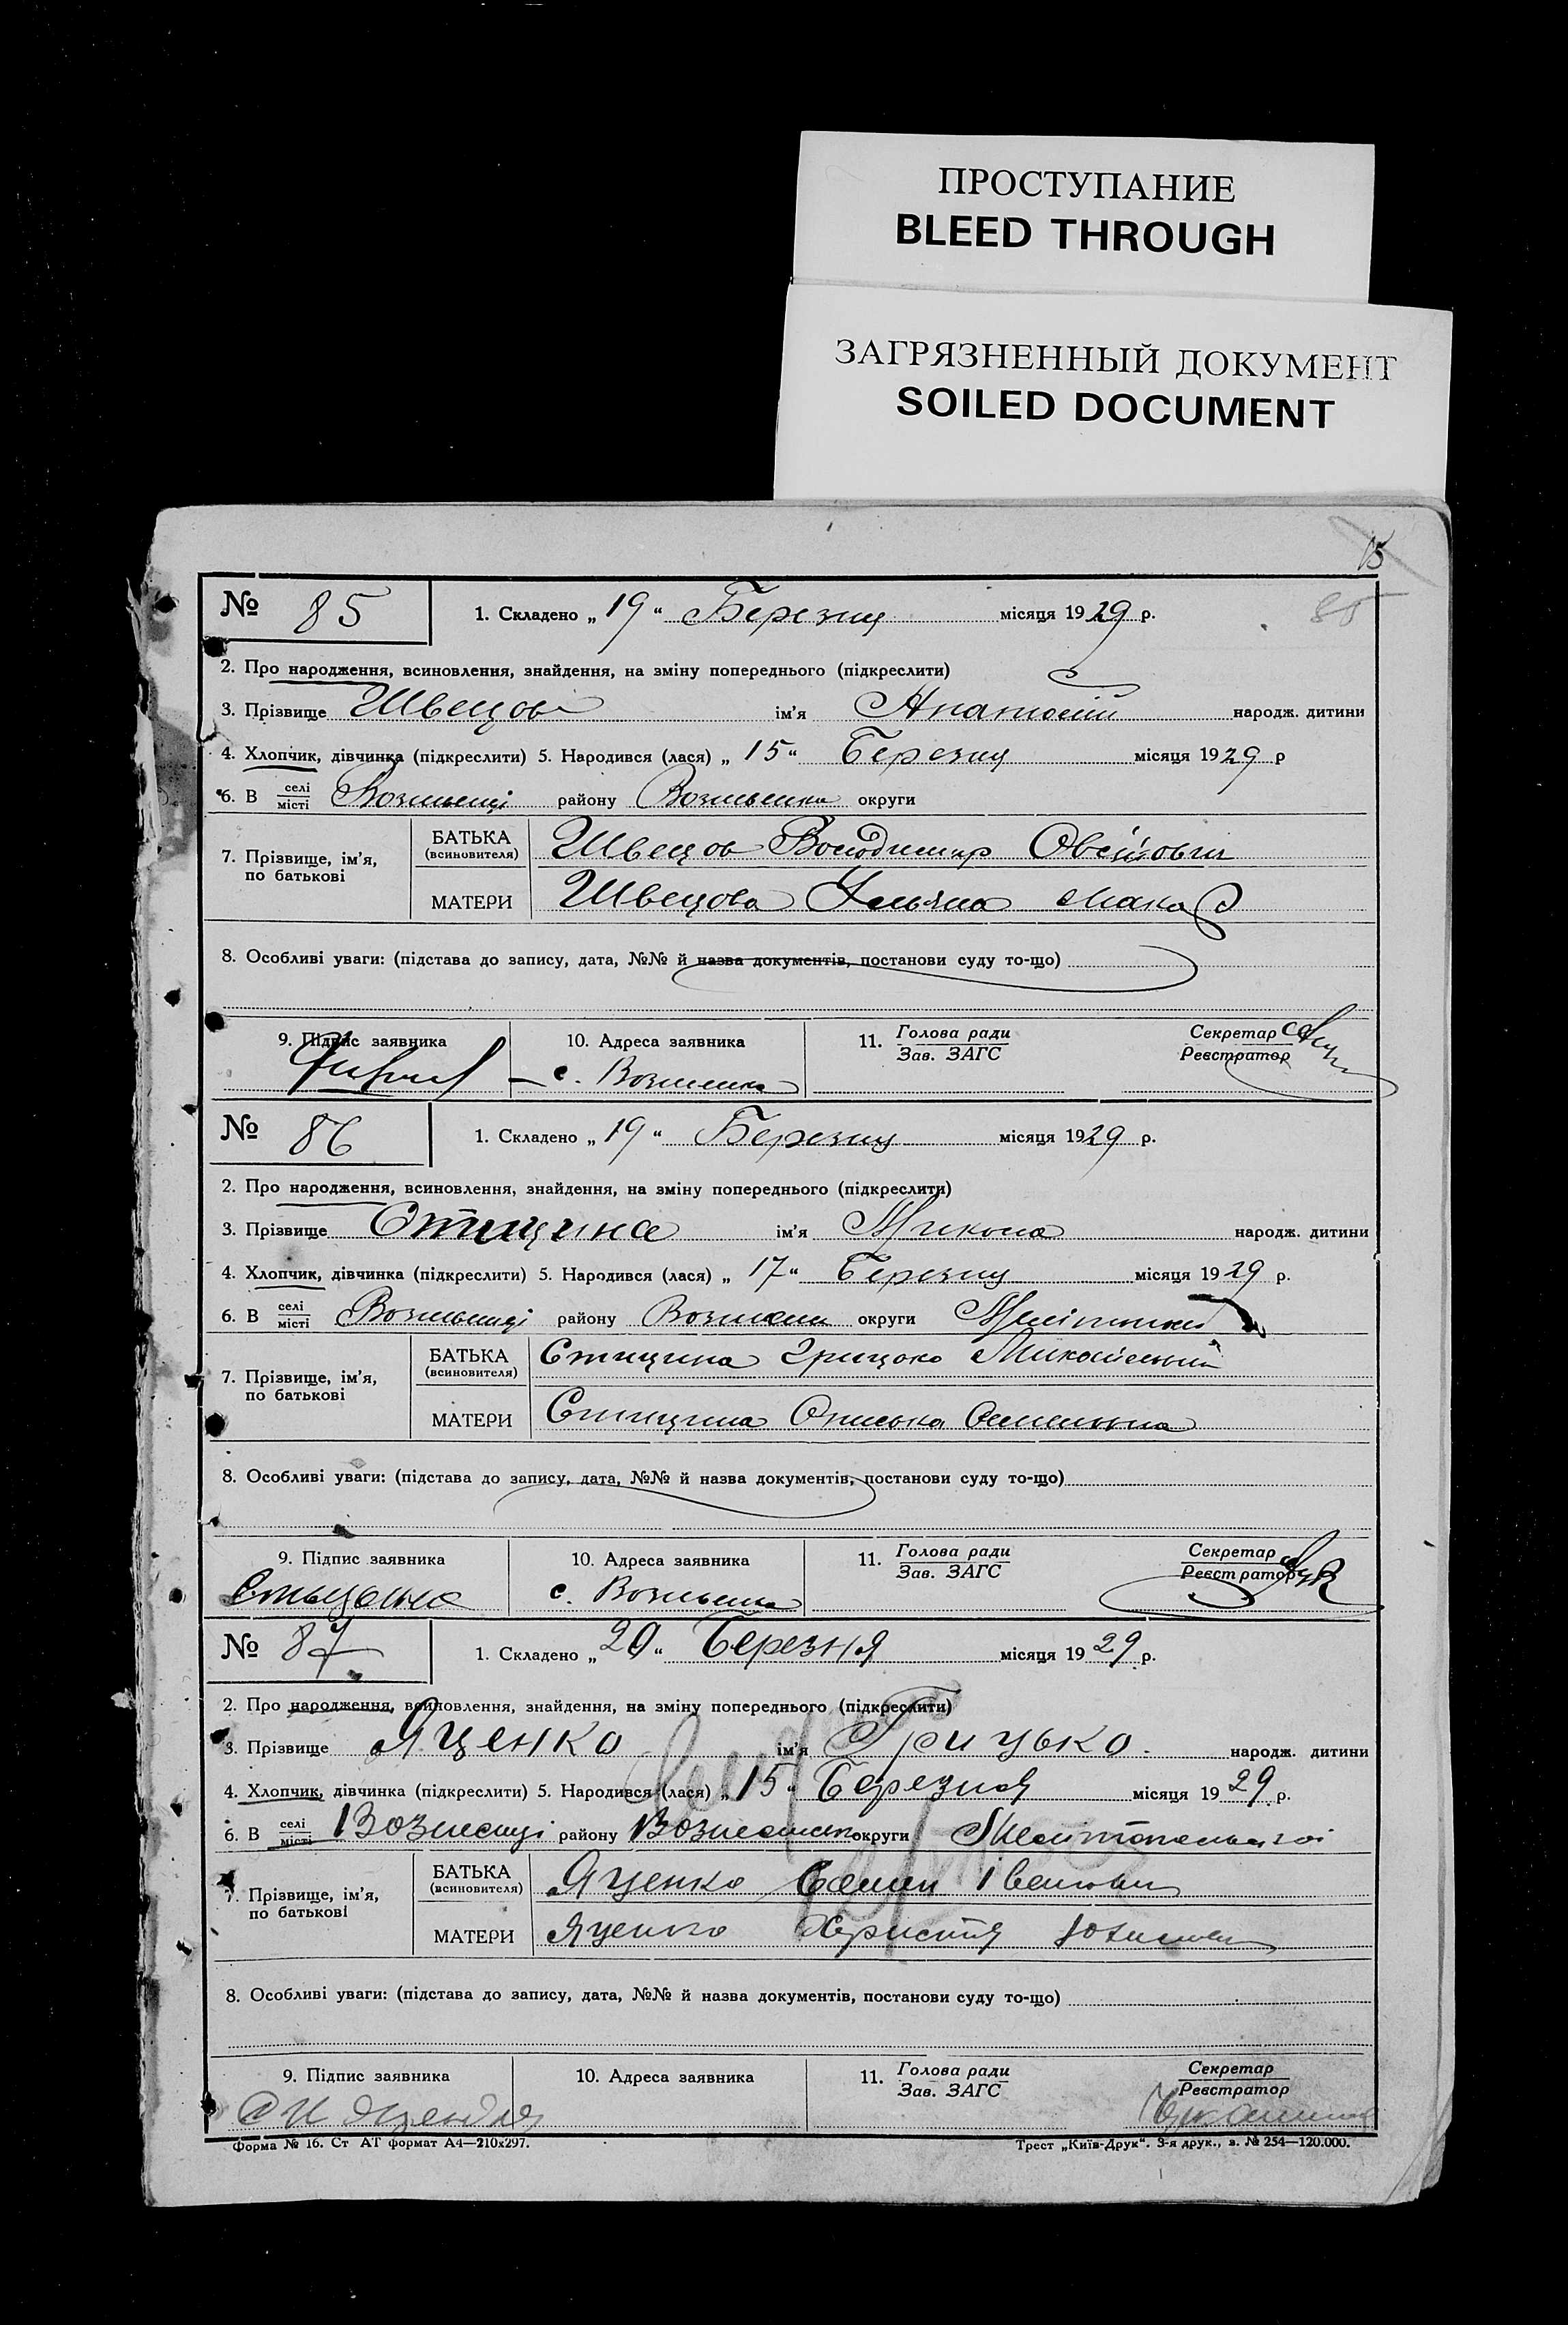 ПРОСТУПАНИЕ
BLEED THROUGH
ЗАГРЯЗНЕННЫЙ ДОКУМЕНТ
SOILED DOCUMENT
№ 85 1. Складено „19“ Березня місяця 1929 р. 85
2. Про народження, всиновлення, знайдення, на зміну попереднього (підкреслити)
3. Прізвище Швецов ім’я Анатолій народж. дитини
4. Хлопчик, дівчинка (підкреслити) 5. Народився (лася) „15“ Березня місяця 1929 р
6. В селі місті району округи
7. Прізвище, ім’я, по батькові БАТЬКА (всиновителя) Швецов Володимир
МАТЕРИ Швецова Уляна Макар
8. Особливі уваги: (підстава до запису, дата, №№ й назва документів, постанови суду то-що)
9. Підпис заявника 10. Адреса заявника 11. Голова ради Зав. ЗАГС Секретар Реєстратор
с.
№ 86 1. Складено „19“ Березня місяця 1929 р.
2. Про народження, всиновлення, знайдення, на зміну попереднього (підкреслити)
3. Прізвище Стицина ім’я Микола народж. дитини
4. Хлопчик, дівчинка (підкреслити) 5. Народився (лася) „17“ Березня місяця 1929 р.
6. В селі місті району округи
7. Прізвище, ім’я, по батькові БАТЬКА (всиновителя) Стицина Грицько
МАТЕРИ Стицина
8. Особливі уваги: (підстава до запису, дата, №№ й назва документів, постанови суду то-що)
9. Підпис заявника 10. Адреса заявника 11. Голова ради Зав. ЗАГС Секретар Реєстратор
с.
№ 87 1. Складено „20“ Березня місяця 1929 р.
2. Про народження, всиновлення, знайдення, на зміну попереднього (підкреслити)
3. Прізвище Яценко ім’я Грицько народж. дитини
4. Хлопчик, дівчинка (підкреслити) 5. Народився (лася) „15“ Березня місяця 1929 р.
6. В селі місті району округи
7. Прізвище, ім’я, по батькові БАТЬКА (всиновителя) Яценко Семен Іванович
МАТЕРИ Яценко Христя
8. Особливі уваги: (підстава до запису, дата, №№ й назва документів, постанови суду то-що)
9. Підпис заявника 10. Адреса заявника 11. Голова ради Зав. ЗАГС Секретар Реєстратор
Форма № 16. Ст АТ формат А4—210х297. Трест „Київ-Друк“. 3-я друк., з. № 254—120.000.